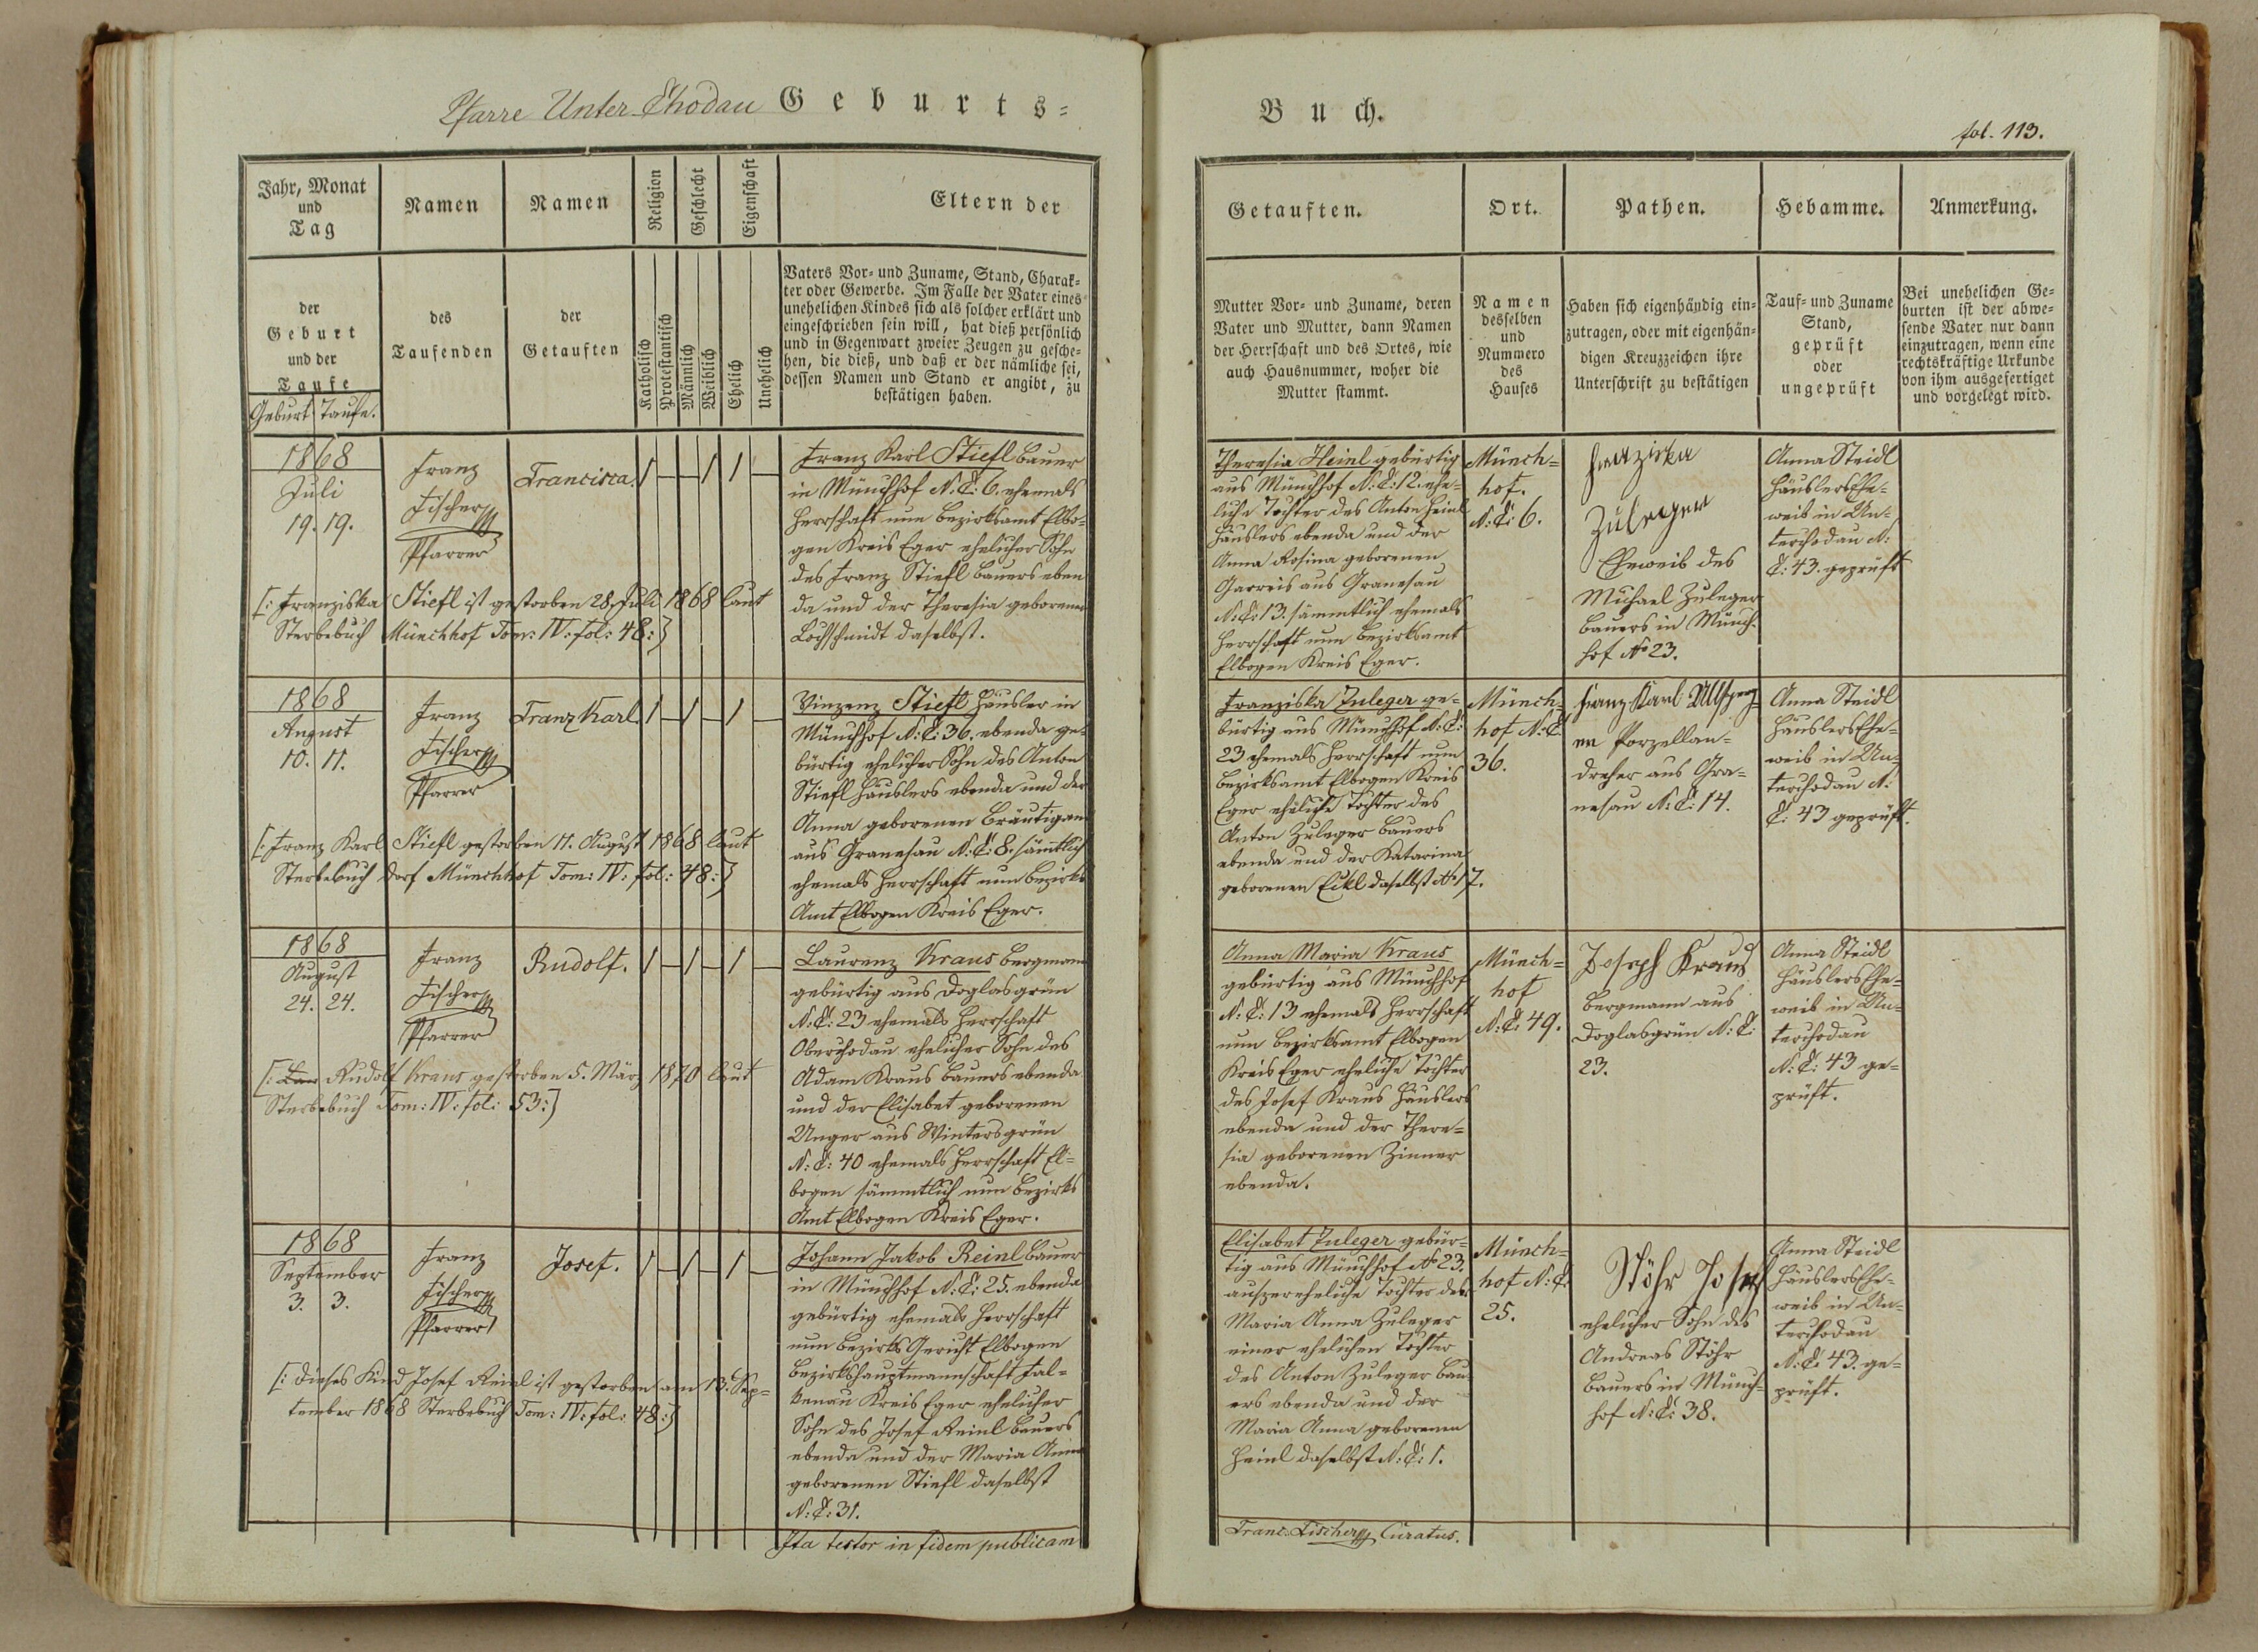 Pfarre Unter Chodau Geburts=
Buch.
fol. 113.
Jahr, Monat
und
Tag
Namen
Namen
Religion
Geschlecht
Eigenschaft
Eltern der
der
Geburt
und der
Taufe
des
Taufenden
der
Getauften
Katholisch
Protestantisch
Männlich
Weiblich
Ehelich
Unehelich
Vaters Vor- und Zuname, Stand, Charak-
ter oder Gewerbe. Im Falle der Vater eines
unehelichen Kindes sich als solcher erklärt und
eingeschrieben sein will, hat dieß persönlich
und in Gegenwart zweier Zeugen zu gesche-
hen, die dieß, und daß er der nämliche sei,
dessen Namen und Stand er angibt, zu
bestätigen haben.
Geburt Taufe.
Getauften.
Ort.
Pathen.
Hebamme.
Anmerkung.
Mutter Vor- und Zuname, deren
Vater und Mutter, dann Namen
der Herrschaft und des Ortes, wie
auch Hausnummer, woher die
Mutter stammt.
Namen
desselben
und
Nummero
des
Hauses
Haben sich eigenhändig ein-
zutragen, oder mit eigenhän-
digen Kreuzzeichen ihre
Unterschrift zu bestätigen
Tauf- und Zuname
Stand,
geprüft
oder
ungeprüft
Bei unehelichen Ge-
burten ist der abwe-
sende Vater nur dann
einzutragen, wenn eine
rechtskräftige Urkunde
von ihm ausgefertiget
und vorgelegt wird.
1868
Juli
19. 19.
Franz
Fischer
Pfarrer
Francisca.
Franz Karl Stiefl Bauer
in Münchhof N:C: 6. ehemals
Herrschaft nun Bezirksamt Elbo=
gen Kreis Eger ehelicher Sohn
des Franz Stiefl Bauers eben
da und der Theresia geborenen
Lochschmidt daselbst.
[: Franziska Stiefl ist gestorben 28. Juli 1868 laut
Sterbebuch Münchhof Tom: IV: fol: 48:]
Theresia Heinl gebürtig
aus Münchhof N:C: 12. ehe=
liche Tochter des Anton Heinl
Häuslers ebenda und der
Anna Rosina geborenen
Garreis aus Granesau
N:C: 13. sämmtlich ehemals
Herrschaft nun Bezirksamt
Elbogen Kreis Eger.
Münch=
hof.
N:C: 6.
Franziska
Zuleger
Eheweib des
Michael Zuleger
Bauers in Münch=
hof No 23.
Anna Steidl
Häuslers Ehe=
weib in Un=
terchodau N:
C: 43. geprüft
1868
August
10. 11.
Franz
Fischer
Pfarrer
Franz Karl.
Vinzenz Stiefl Häusler in
Münchhof N:C: 36. ebenda ge=
bürtig ehelicher Sohn des Anton
Stiefl Häuslers ebenda und der
Anna geborenen Bräutigam
aus Granesau N:C: 8. sämtlich
ehemals Herrschaft nun Bezirks
Amt Elbogen Kreis Eger.
[: Franz Karl Stiefl gestorben 11. August 1868 laut
Sterbebuch Dorf Münchhof Tom: IV: fol: 48:]
Franziska Zuleger ge=
bürtig aus Münchhof N:C:
23 ehemals Herrschaft nun
Bezirksamt Elbogen Kreis
Eger eheliche Tochter des
Anton Zuleger Bauers
ebenda und der Katarina
geborenen Eckl daselbst No 17.
Münch=
hof N:C
36.
Franz Karl
Porzellan=
dreher aus Gra=
nesau N:C: 14.
Anna Steidl
Häuslers Ehe=
weib in Un=
terchodau N:
C: 43 geprüft.
1868
August
24. 24.
Franz
Fischer
Pfarrer
Rudolf.
Laurenz Kraus Bergmann
gebürtig aus Doglasgrün
N:C: 23 ehemals Herrschaft
Oberchodau ehelicher Sohn des
Adam Kraus Bauers ebenda
und der Elisabet geborenen
Unger aus Wintersgrün
N:C: 40 ehemals Herrschaft El=
bogen sämmtlich nun Bezirks
Amt Elbogen Kreis Eger.
[: Lau Rudolf Kraus gestorben 5. März 1870 laut
Sterbebuch Tom: IV: fol: 53:]
Anna Maria Kraus
gebürtig aus Münchhof
N:C: 13 ehemals Herrschaft
nun Bezirksamt Elbogen
Kreis Eger eheliche Tochter
des Josef Kraus Häuslers
ebenda und der There=
sia geborenen Zinner
ebenda.
Münch=
hof
N:C: 49.
Joseph Kraus
Bergmann aus
Doglasgrün N:C:
23.
Anna Steidl
Häuslers Ehe=
weib in Un=
terchodau
N:C: 43 ge=
prüft.
1868
September
3. 3.
Franz
Fischer
Pfarrer
Josef.
Johann Jakob Reinl Bauer
in Münchhof N:C: 25. ebenda
gebürtig ehemals Herrschaft
nun Bezirks Gericht Elbogen
Bezirkshauptmannschaft Fal=
kenau Kreis Eger ehelicher
Sohn des Josef Reinl Bauers
ebenda und der Maria Anna
geborenen Stiefl daselbst
N:C: 31.
[: Dieses Kind Josef Reinl ist gestorben am 13. Sep=
tember 1868 Sterbebuch Tom: IV: fol: 48:]
Elisabet Zuleger gebür=
tig aus Münchhof No 23.
auszereheliche Tochter der
Maria Anna Zuleger
einer ehelichen Tochter
des Anton Zuleger Bau
ers ebenda und der
Maria Anna geborenen
Heinl daselbst N:C: 1.
Münch=
hof N:C:
25.
Stöhr Josef
ehelicher Sohn des
Andreas Stöhr
Bauers in Münch=
hof N:C: 38.
Anna Steidl
Häuslers Ehe=
weib in Un=
terchodau
N:C: 43. ge=
prüft.
Ita testor in fidem publicam
Franc. Fischer Curatus.